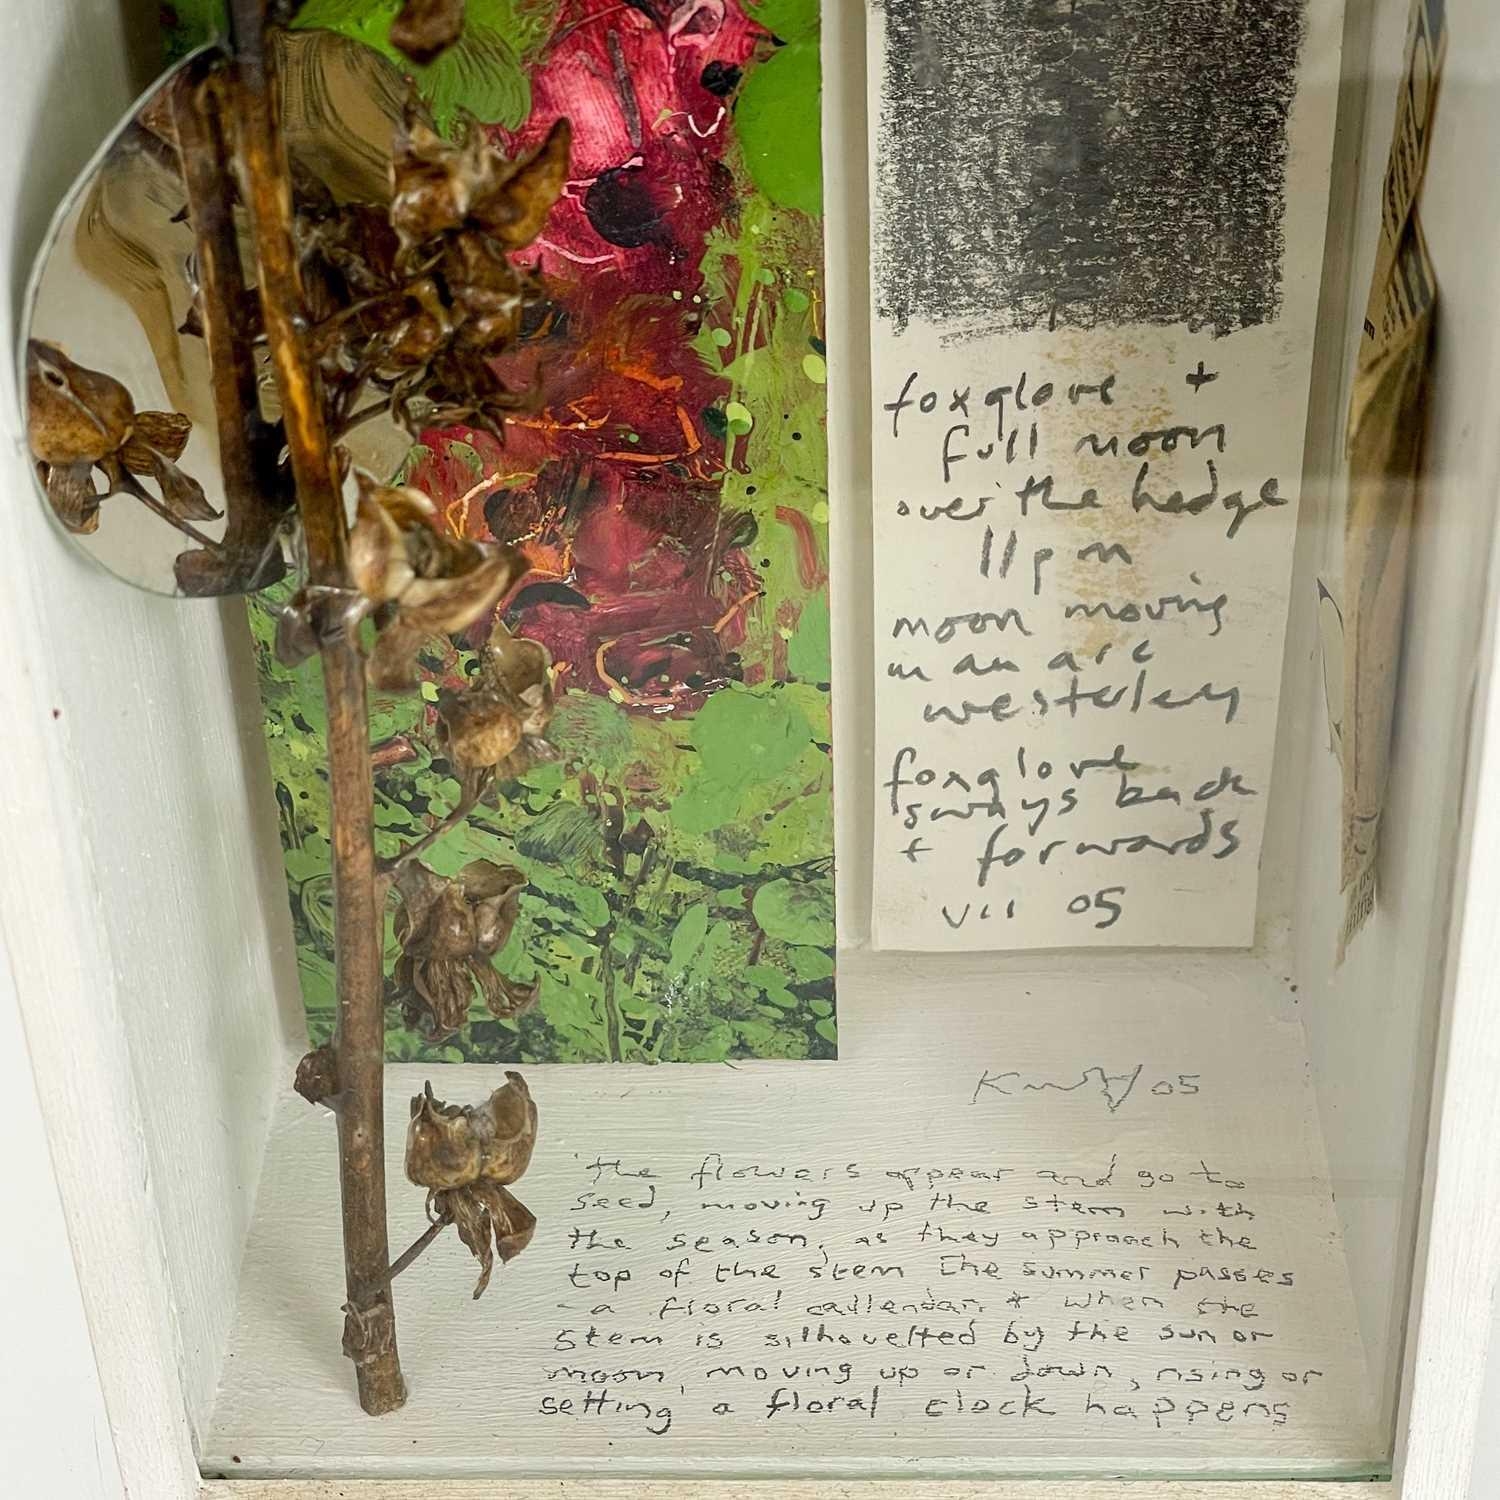 foxglove +
full moon
over the hedge
11pm
moon moving
in an arc
westerley
foxglove
sways back
+ forwards
vii 05
05
'the flowers appear and go to
seed, moving up the stem with
the season, as they approach the
top of the stem the summer passes
- a floral callendar, + when the
stem is silhouetted by the sun or
moon, moving up or down, rising or
setting a floral clock happens